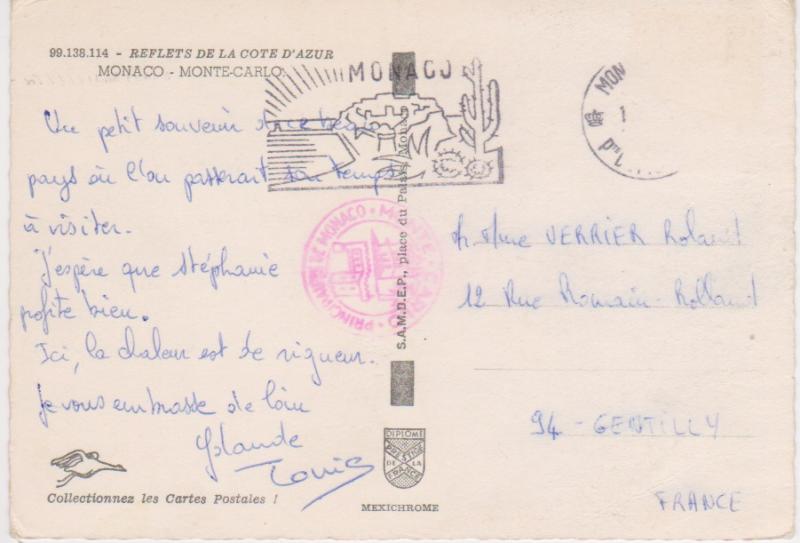 99.138.114 - REFLETS DE LA COTE D'AZUR
MONACO - MONTE-CARLO
MONACO
MON
1
Un petit souvenir de ce beau
pays où l'on passerait son temps
à visiter.
J'espère que Stéphanie
profite bien.
Ici, la chaleur est de rigueur.
Je vous embrasse de loin
Yolande
PRINCIPAUTE DE MONACO • MONTE-CARLO •
S.A.M.D.E.P., place du Palais, Monaco
VERRIER Roland
12 Rue Romain-Rolland
94 - GENTILLY
FRANCE
DIPLOME
PRESTIGE
DE LA
FRANCE
MEXICHROME
Collectionnez les Cartes Postales !